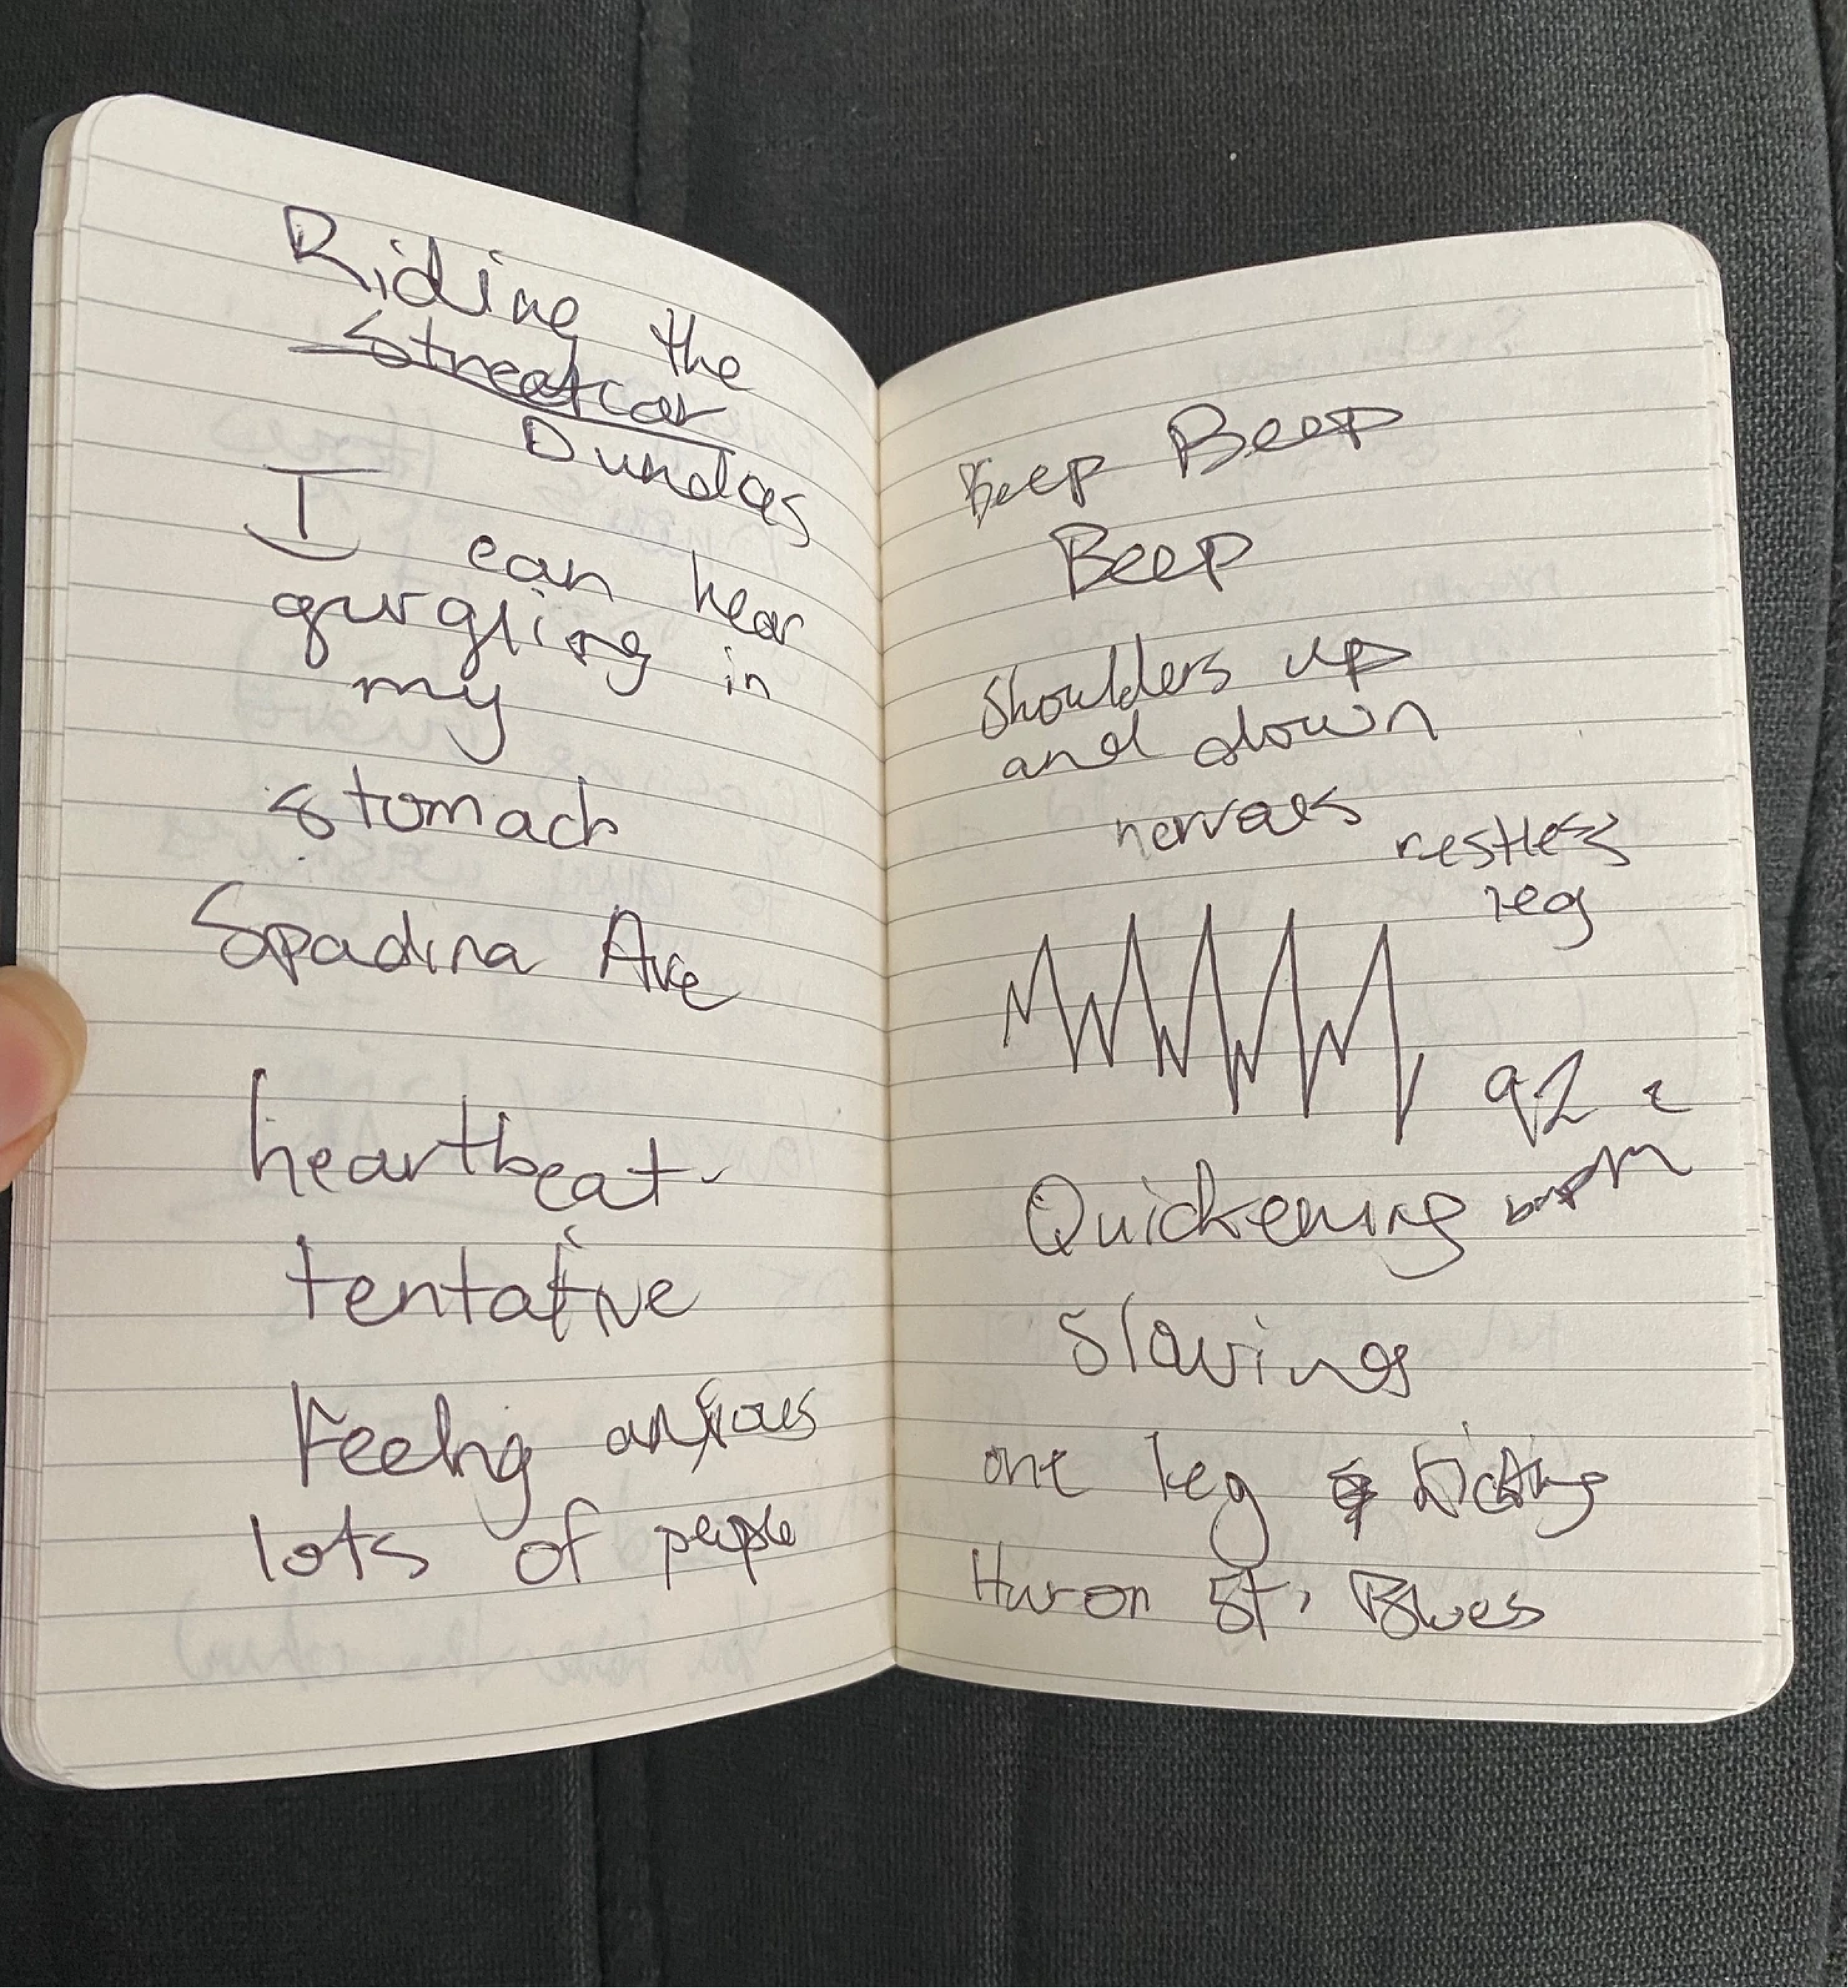 Riding the
Streetcar
Dundas
I can hear
gurgling in
my
stomach
Spadina Ave
heartbeat
tentative
Feeling anxious
lots of people
Beep Beep
Beep
Shoulders up
and down
nerves restless
leg
92
bpm
Quickening
Slowing
one leg kicking
Huron St. Blues